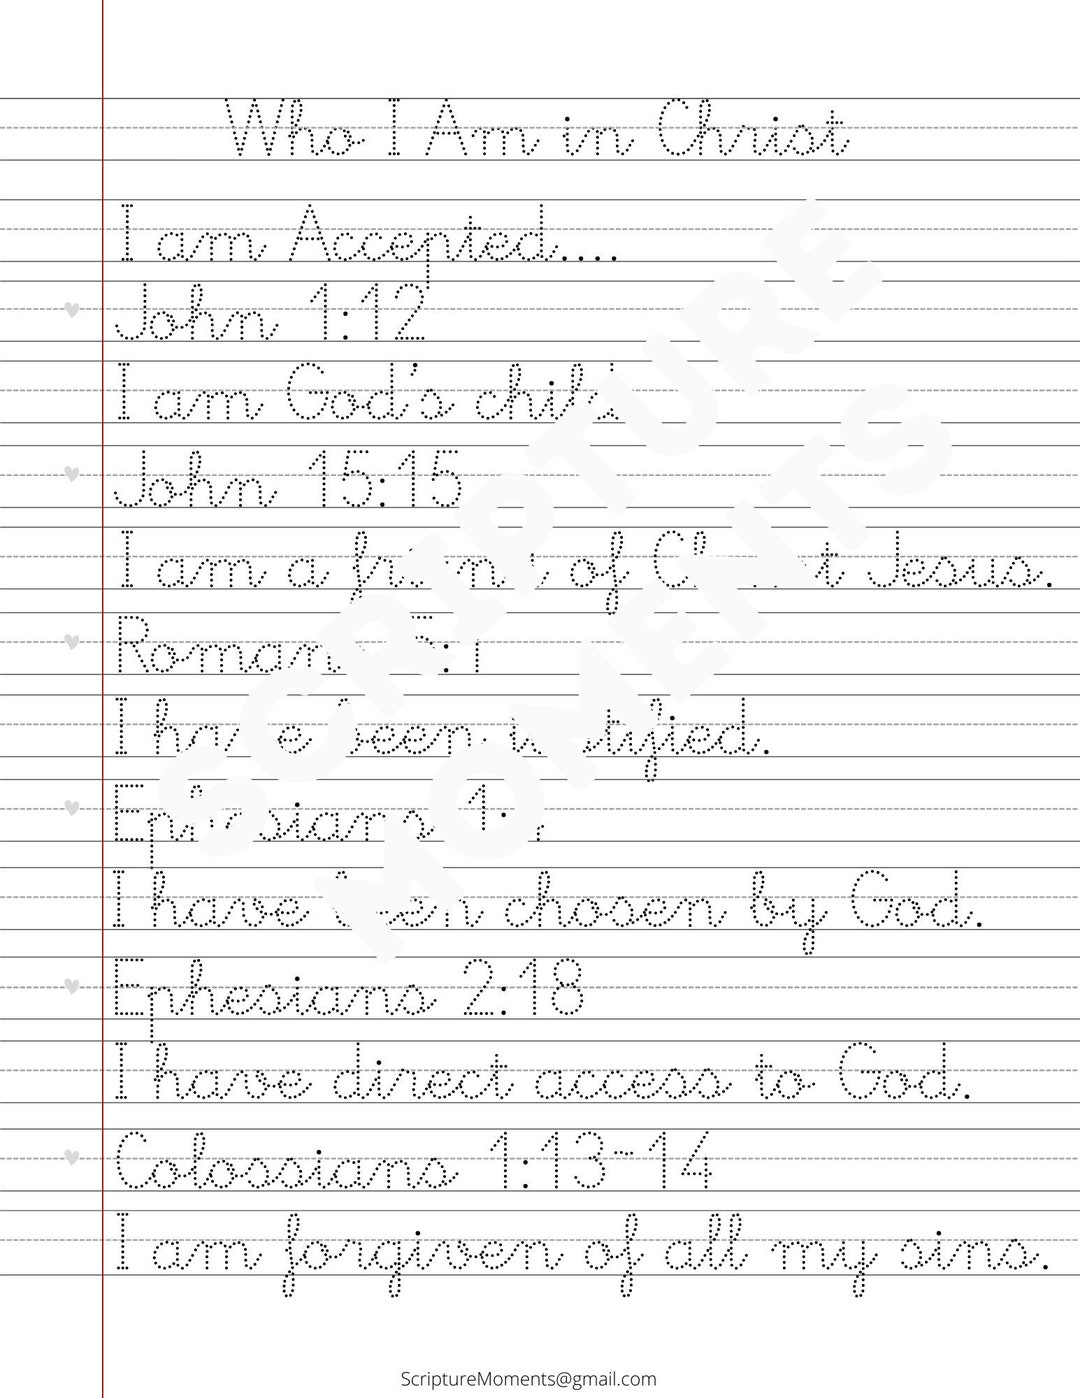 Who I Am in Christ
I am Accepted....
John 1:12
I am God's child
John 15:15
I am a friend of Christ Jesus.
Romans 5:1
I have been justified.
Ephesians 1:
I have been chosen by God.
Ephesians 2:18
I have direct access to God.
Colossians 1:13-14
I am forgiven of all my sins.
SCRIPTURE
MOMENTS
ScriptureMoments@gmail.com